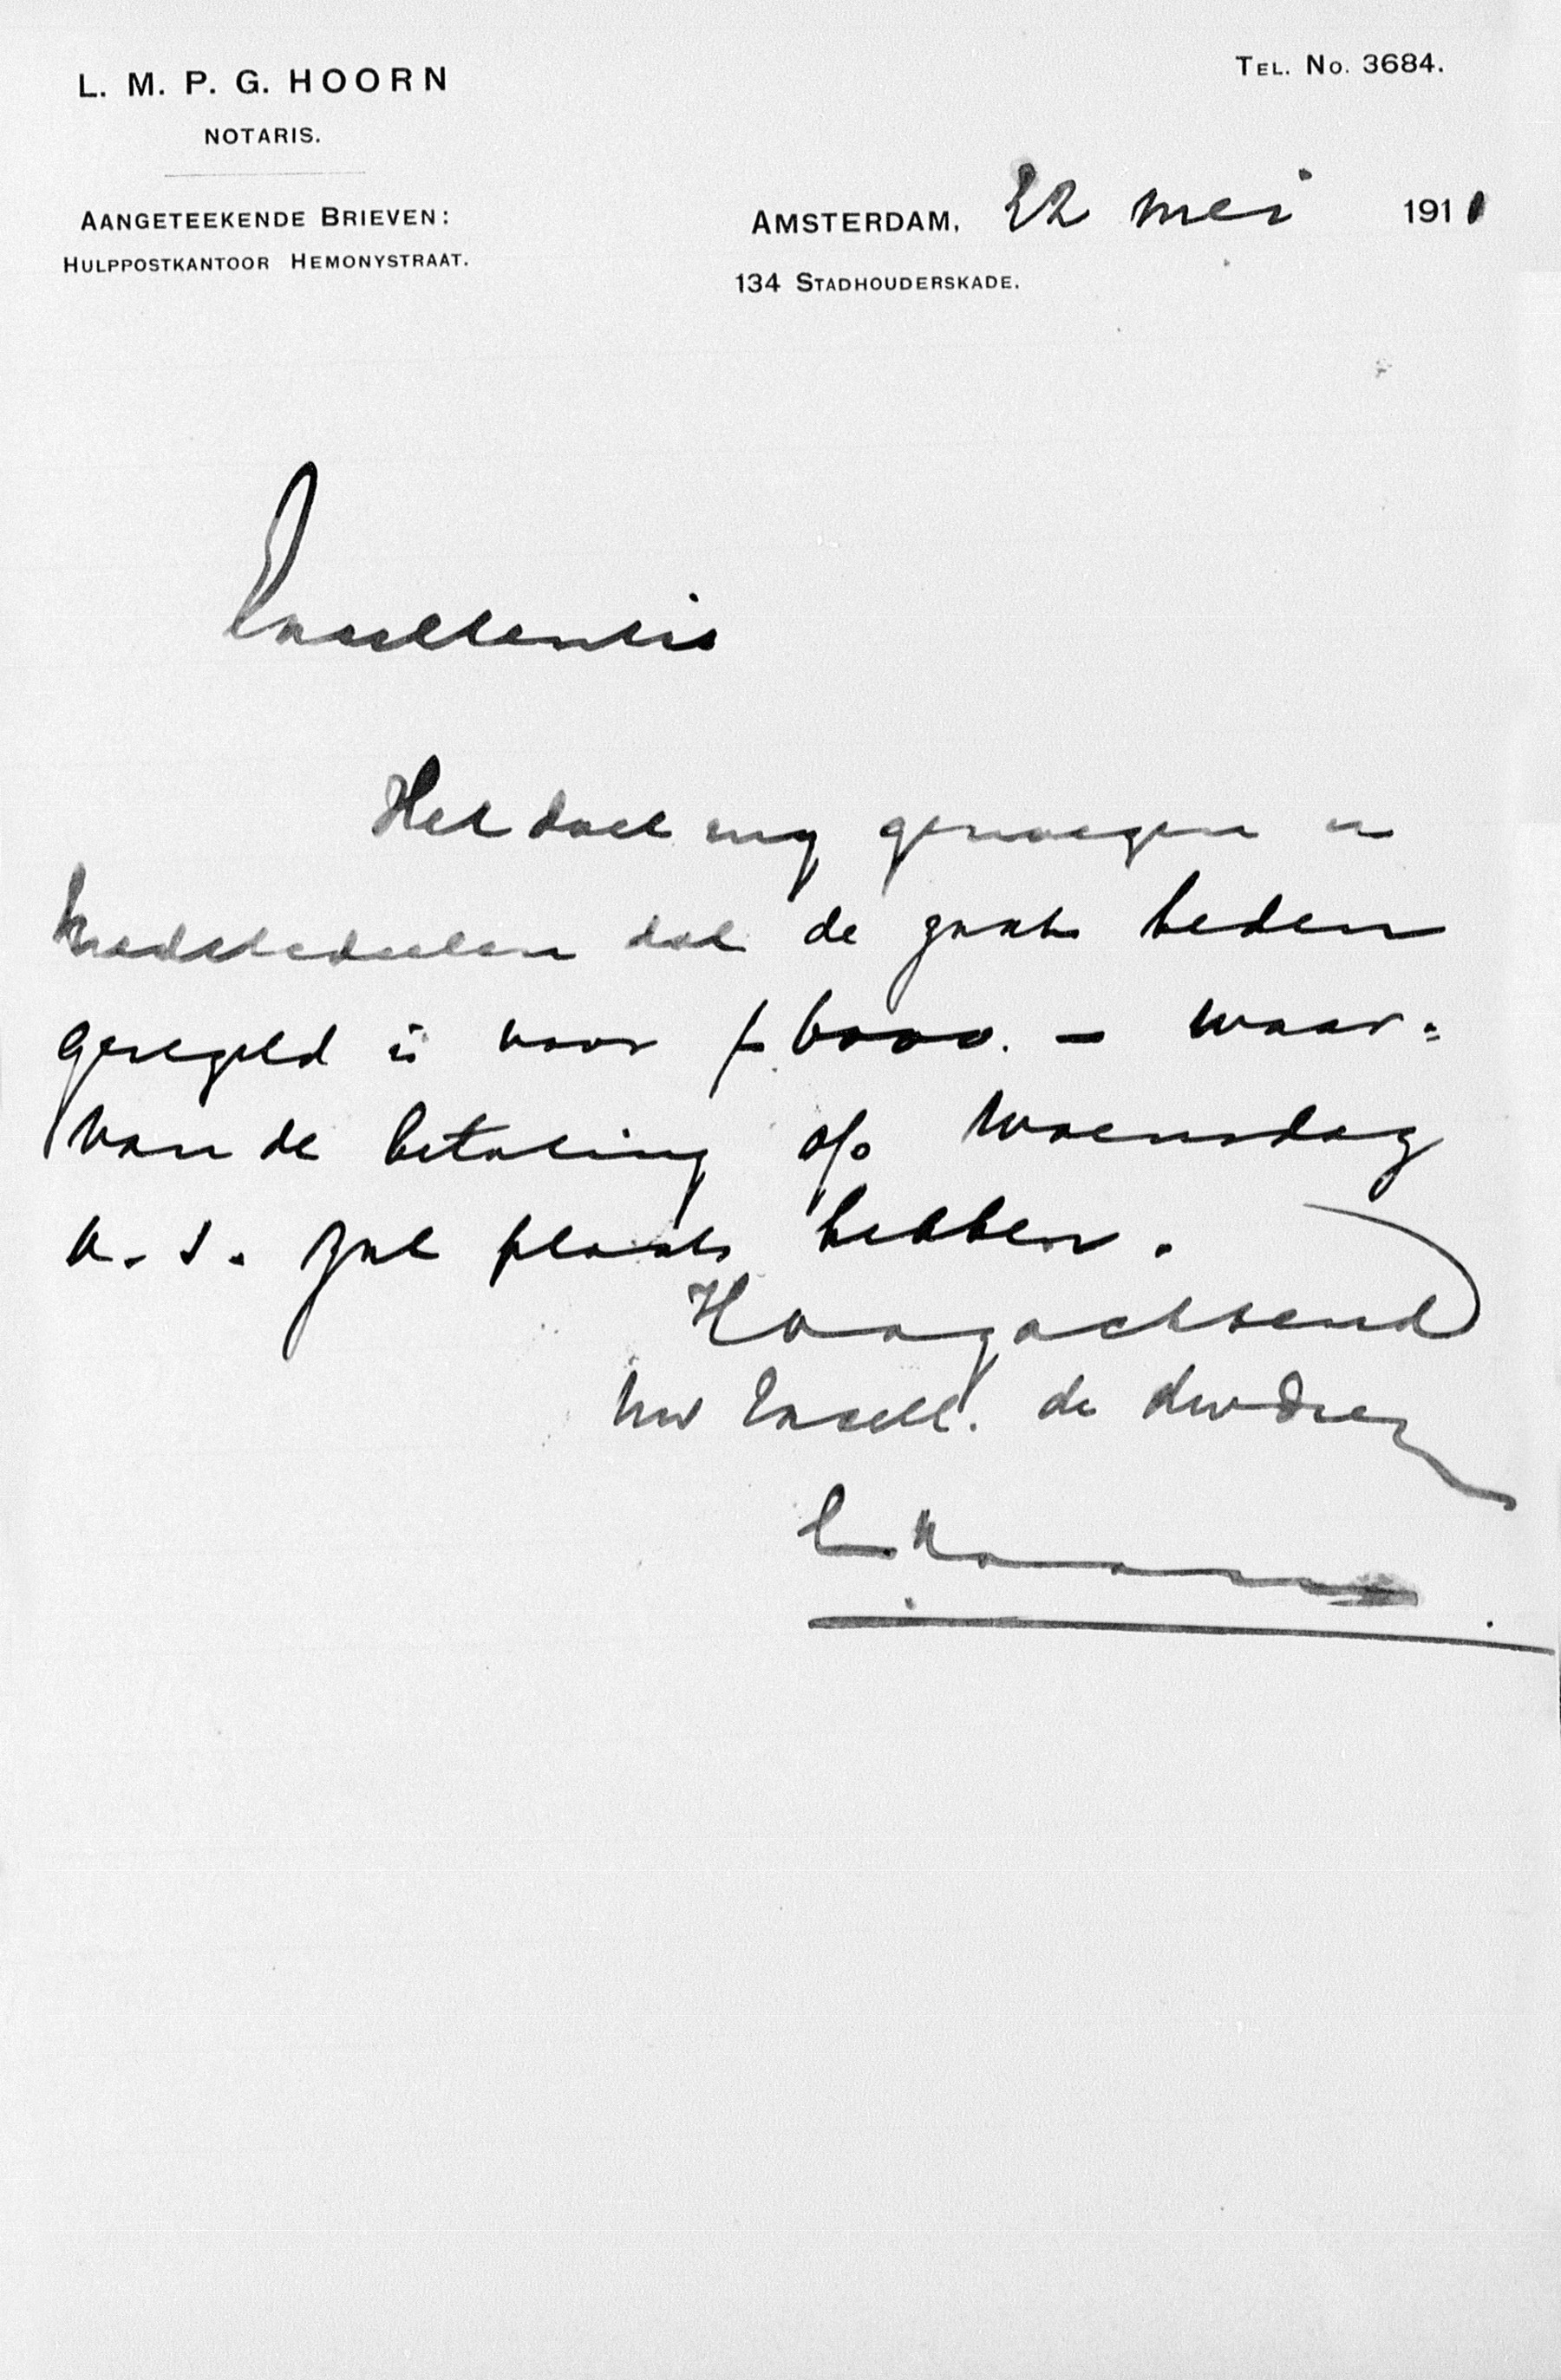 L. M. P. G. HOORN
NOTARIS.
TEL. No. 3684.
AANGETEEKENDE BRIEVEN:
HULPPOSTKANTOOR HEMONYSTRAAT.
AMSTERDAM, 22 mei 1911
134 STADHOUDERSKADE.
Excellentie
Het doet my genoegen u
medetedeelen dat de zaak heden
geregeld is voor f 6000. – waar=
van de betaling op Woensdag
a. s. zal plaats hebben.
Hoogachtend
Uw Excell. dw dr
L. Hoorn